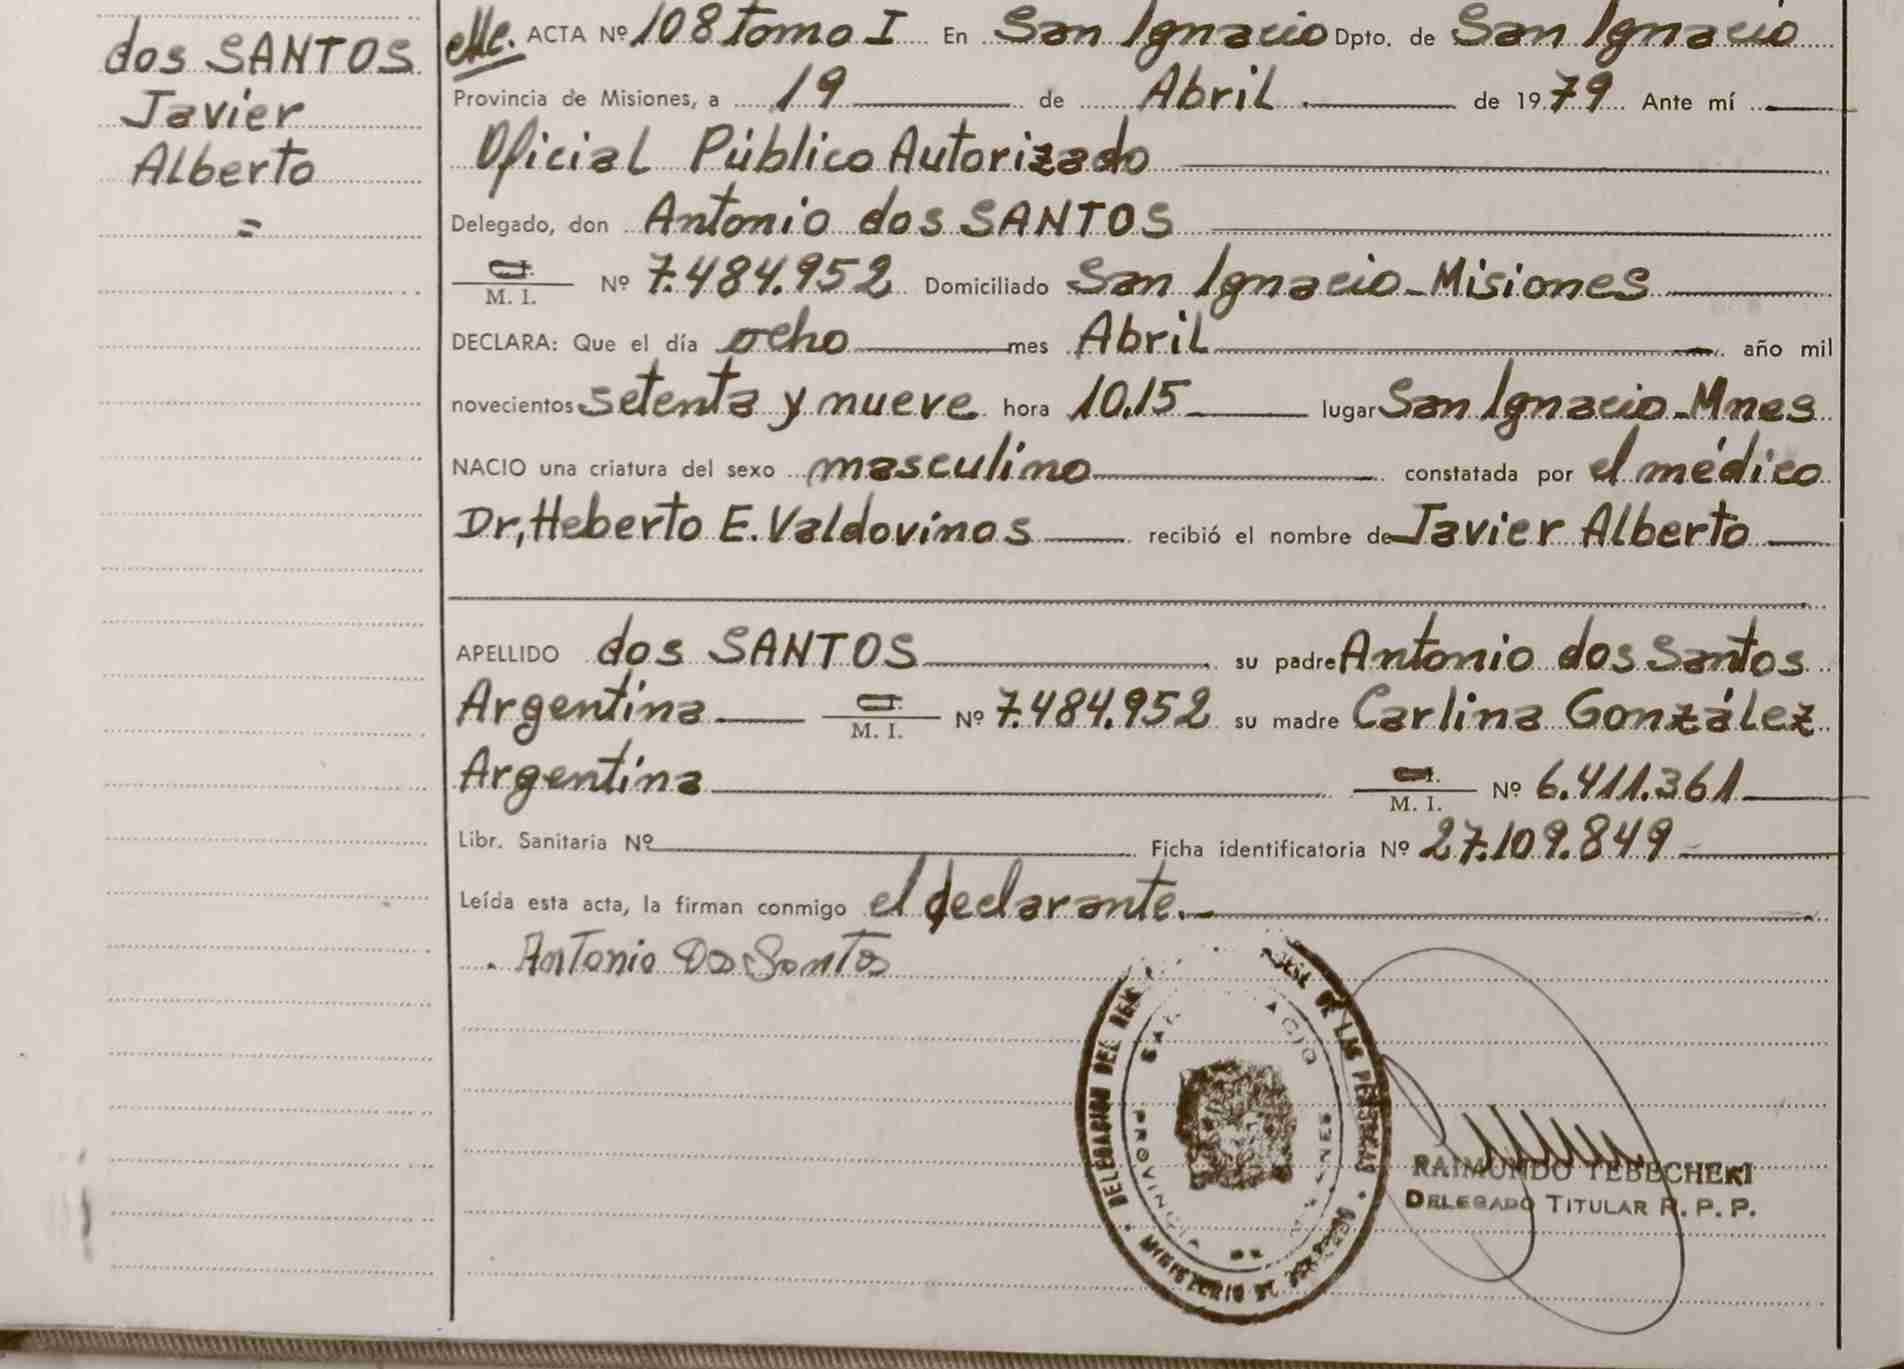 dos SANTOS
Javier
Alberto
=
ACTA Nº 108 tomo I En San Ignacio Dpto. de San Ignacio
Provincia de Misiones, a 19 de Abril de 1979 Ante mí
Oficial Público Autorizado
Delegado, don Antonio dos SANTOS
M. I. Nº 7.484.952 Domiciliado San Ignacio-Misiones
DECLARA: Que el día ocho mes Abril año mil
novecientos setenta y nueve hora 10.15 lugar San Ignacio-Mnes
NACIO una criatura del sexo masculino constatada por el médico
Dr, Heberto E. Valdovinos recibió el nombre de Javier Alberto
APELLIDO dos SANTOS su padre Antonio dos Santos
Argentina M. I. Nº 7.484.952 su madre Carlina González
Argentina M. I. Nº 6.411.361
Libr. Sanitaria Nº Ficha identificatoria Nº 27.109.849
Leída esta acta, la firman conmigo el declarante.
Antonio Dos Santos
DELEGACION DEL DE LAS PERSONAS
PROVINCIA
MINISTERIO DE
RAIMUNDO TEBECHERI
DELEGADO TITULAR R. P. P.